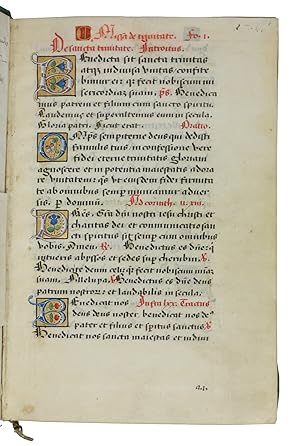 Missa de trinitate. Fo. 1.
De sancta trinitate. Introitus.
Benedicta sit sancta trinitas
atque indivisa unitas: confite
bimur ei: quia fecit nobiscum mi
sericordiam suam. ps. Benedica
mus patrem et filium cum sancto spiritu.
Laudemus et superexaltemus eum in secula.
Gloria patri. Sicut erat. Oratio.
Omps sempiterne deus qui dedisti
famulis tuis in confessione vere
fidei eterne trinitatis gloriam
agnoscere et in potentia maiestatis adora
re unitatem: qs ut eiusdem fidei firmita
te ab omnibus semper muniamur adver
sis. p dominum. Ad corinth. ii. xiii.
Fres. Gra dni nostri iesu christi et
charitas dei et communicatio san
cti spiritus sit semp cum omnibus
vobis. Amen. R Benedictus es dne qui
intueris abyssos et sedes sup cherubin. V
Benedicite deum celi: quia fecit nobiscum miam
suam. Alleluya. V Benedictus es dne deus
patrum nostrorum: et laudabilis in secula.
Benedicat nos Tractus
deus deus noster. benedicat nos de
pater et filius et spiritus sanctus. V
Benedicat nos sancta maiestas et unus
a.1.